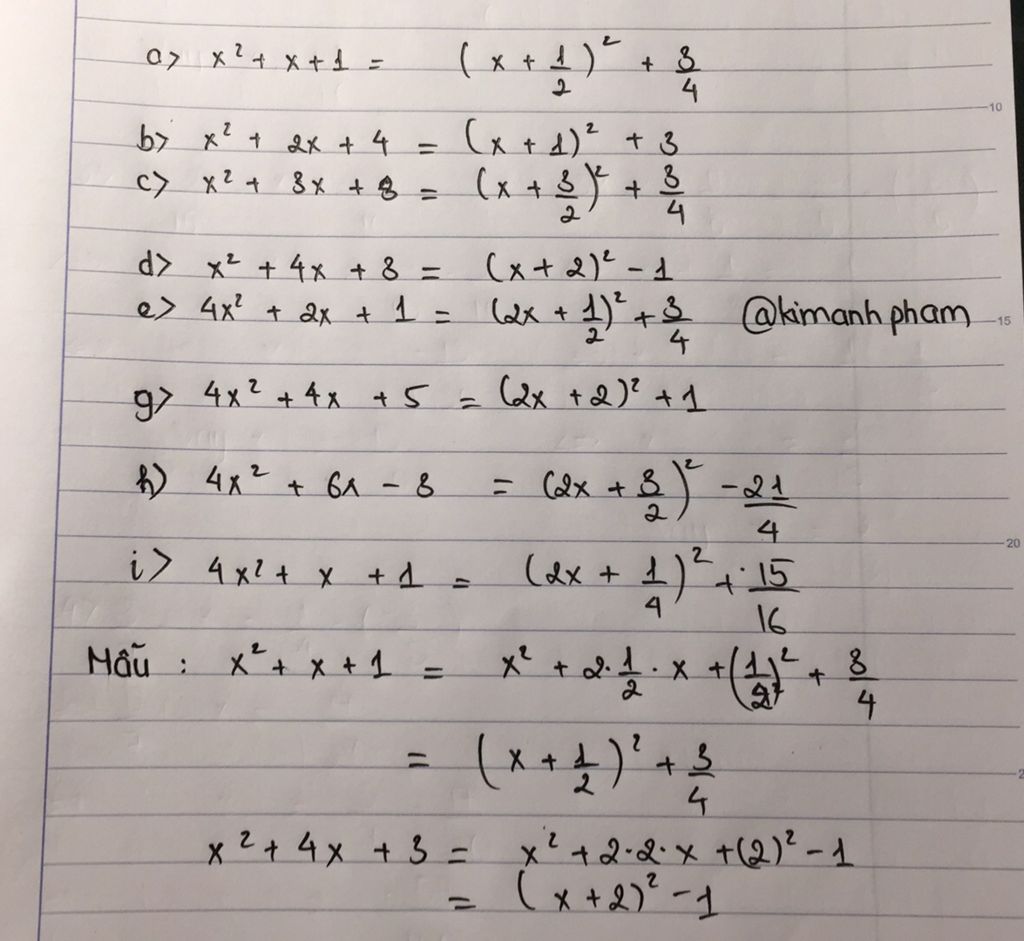 a> x² + x + 1 = (x + 1/2)² + 3/4
10
b> x² + 2x + 4 = (x + 1)² + 3
c> x² + 3x + 3 = (x + 3/2)² + 3/4
d> x² + 4x + 3 = (x + 2)² - 1
e> 4x² + 2x + 1 = (2x + 1/2)² + 3/4 @kimanhpham
15
g> 4x² + 4x + 5 = (2x + 2)² + 1
h) 4x² + 6x - 3 = (2x + 3/2)² - 21/4
20
i> 4x² + x + 1 = (2x + 1/4)² + 15/16
Mẫu : x² + x + 1 = x² + 2·1/2·x + (1/2)² + 3/4
= (x + 1/2)² + 3/4
x² + 4x + 3 = x² + 2·2·x + (2)² - 1
= (x + 2)² - 1